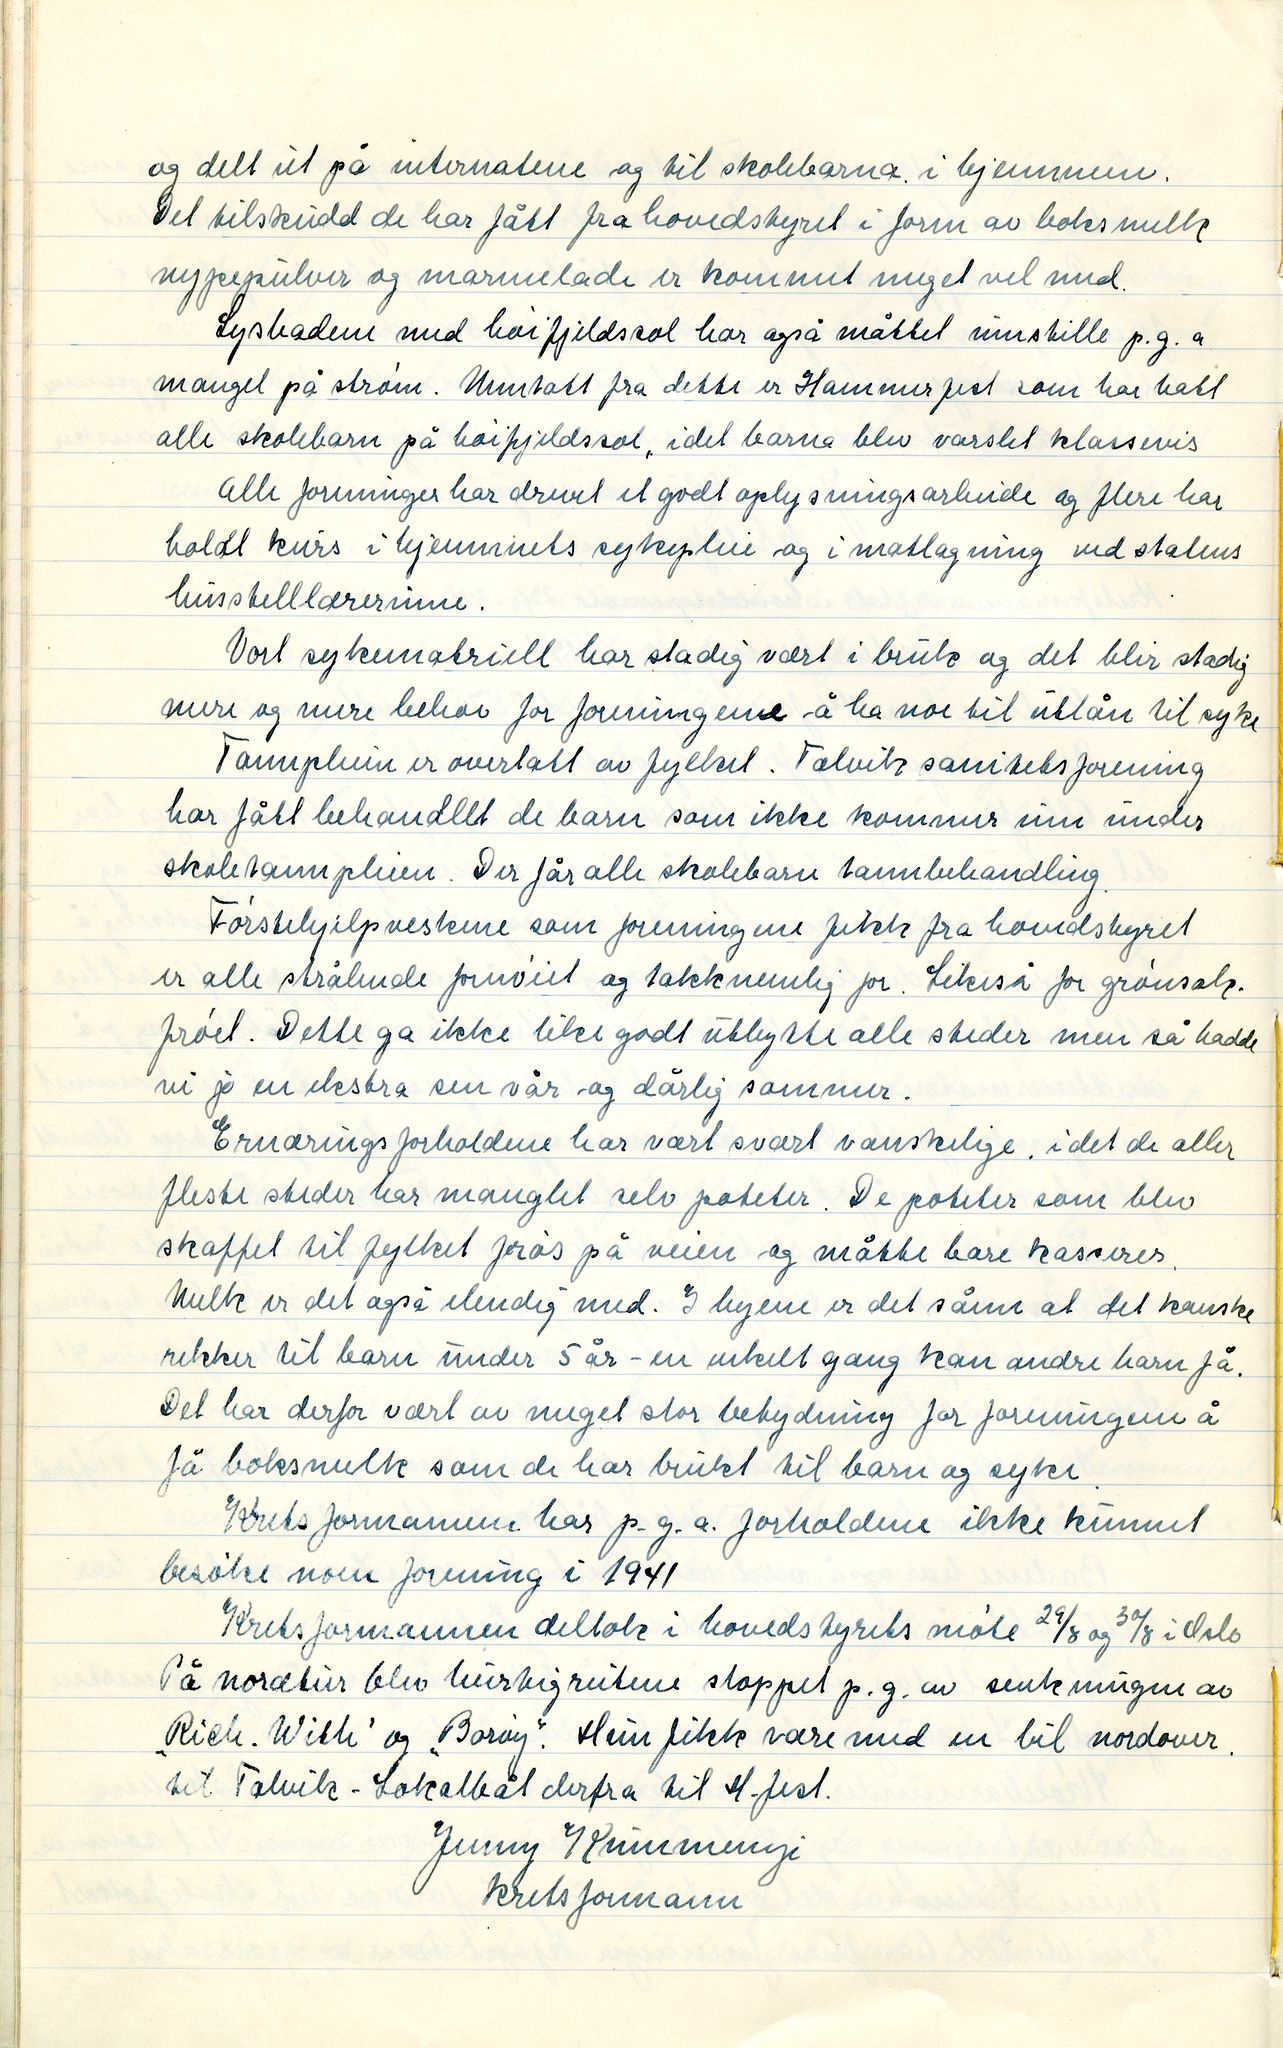 og delt ut på internatene og til skolebarna. i hjemmene.
Det tilskudd de har fått fra hovedstyret i form av boksmelk
nypepulver og marmelade er kommet meget vel med.
Lysbadene med höifjeldssol har også måttet innstille p.g.a
mangel på strøm. Unntatt fra dette er Hammerfest som har hatt
alle skolebarn på höifjeldssol, idet barna blev varslet klassevis
Alle foreninger har drevet et godt oplysningsarbeide og flere har
holdt kurs i hjemmets sykepleie og i matlagning ved statens
husstellærerinne.
Vort sykematriell har stadig vært i bruk og det blir stadig
mere og mere behov for foreningene å ha noe til utlån til syke
Tannpleien er overtatt av fylket. Talvik sanitetsforening
har fått behandllt de barn som ikke kommer inn under
skoletannpleien. Der får alle skolebarn tannbehandling.
Förstehjelpveskene som foreningene fikk fra hovedstyret
er alle strålende fornöiet og takknemlig for. Likeså for grönsak-
fröet. Dette ga ikke like godt utbytte alle steder men så hadde
vi jo en ekstra sen vår og dårlig sommer.
Ernæringsforholdene har vært svært vanskelige, idet de aller
fleste steder har manglet selv poteter. De poteter som blev
skaffet til fylket frös på veien og måtte bare kasseres.
Melk er det også elendig med. I byene er det sånn at det kanske
rekker til barn under 5 år – en enkelt gang kan andre barn få.
Det har derfor vært av meget stor betydning for foreningene å
få boksmelk som de har brukt til barn og syke.
Kretsformannen har p.g.a. forholdene ikke kunnet
besöke noen forening i 1941
Kretsformannen deltok i hovedstyrets möte 29/8 og 30/8 i Oslo
På nordtur blev hurtigrutene stoppet p.g. av senkningen av
„Rich. With' og „Baröy". Hun fikk være med en bil nordover.
til Talvik - Lokalbåt derfra til H-fest.
Jenny Kummeneje
Kretsformann